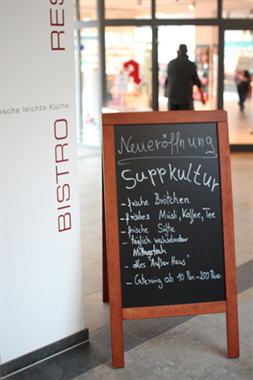 RES
ische leichte Küche
BISTRO
Neueröffnung
Suppkultur
- frische Brötchen
- frisches Müsli, Kaffee, Tee
- frische Säfte
- täglich wechselnder
Mittagstisch
- alles "Außer Haus"
- Catering ab 10 Per.-250 Per.